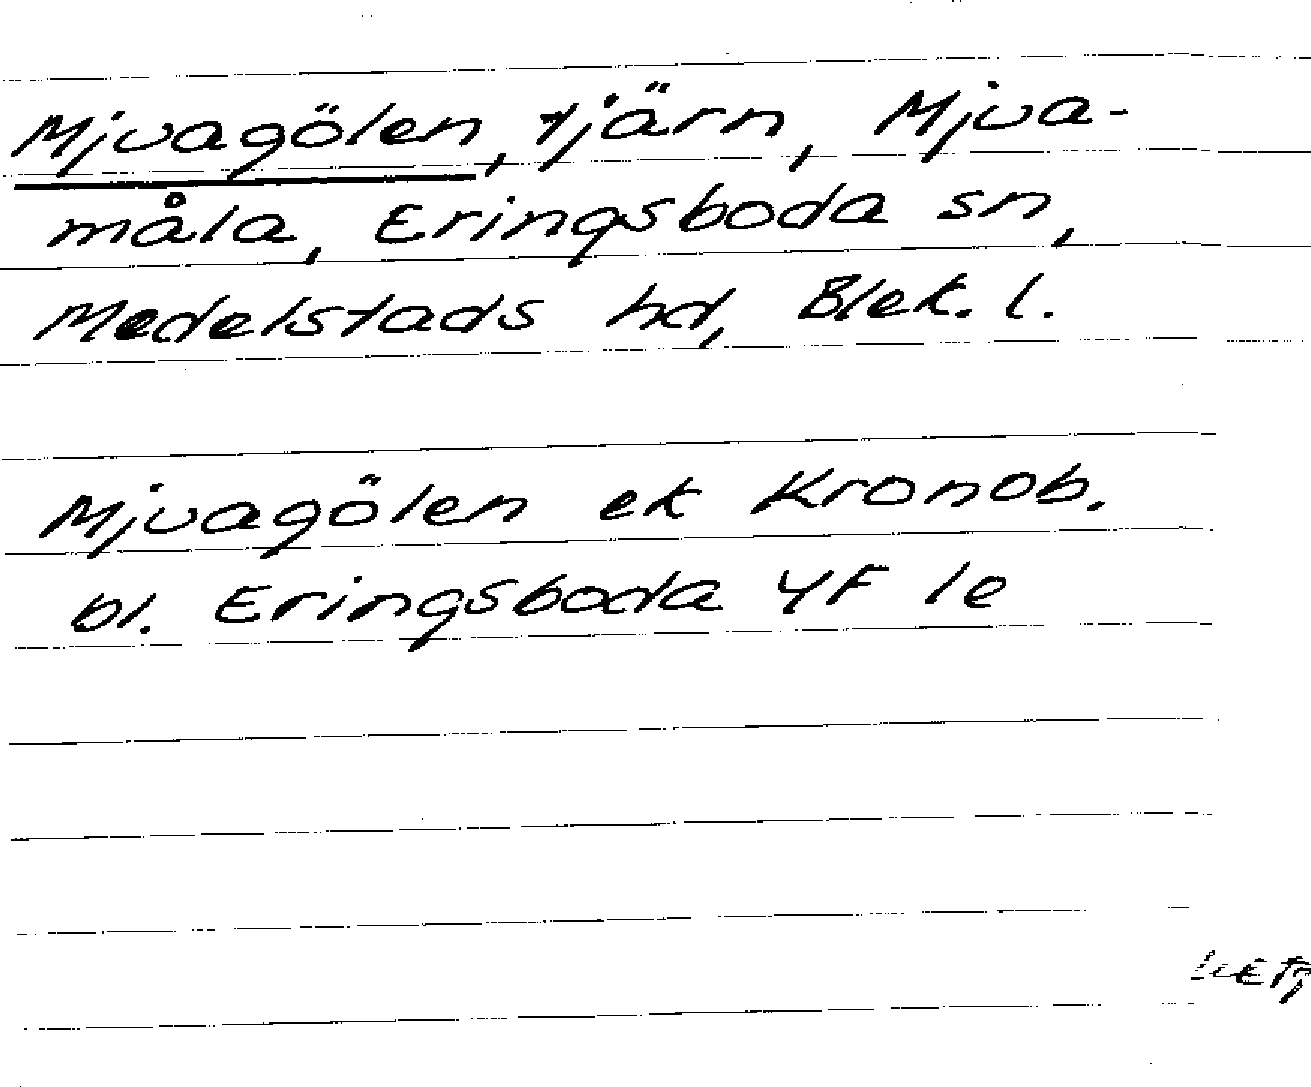 Mjuagölen, tjärn, Mjua-
måla, Eringsboda sn,
Medelstads hd, Blek. l.
Mjuagölen ek Kronob.
bl. Eringsboda 4F 1e